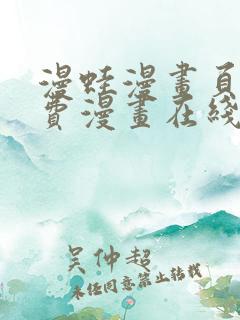 漫蛙漫畫頁
費漫畫在綫
吴仲超
未经同意禁止转载